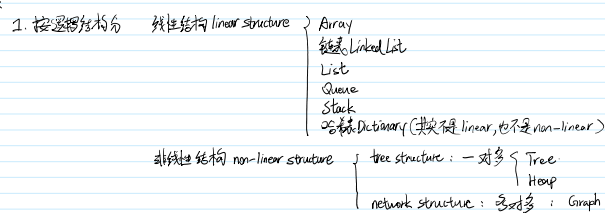 1. 按逻辑结构分 线性结构 linear structure Array
链表 Linked List
List
Queue
Stack
哈希表 Dictionary (其实不是 linear, 也不是 non-linear)
非线性结构 non-linear structure tree structure : 一对多 Tree
Heap
network structure : 多对多 : Graph